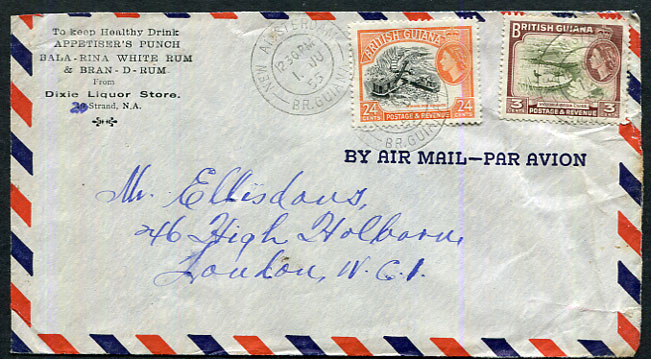 To keep Healthy Drink
APPETISER'S PUNCH
BALA-RINA WHITE RUM
& BRAN-D-RUM.
From
Dixie Liquor Store.
Strand, N.A.
NEW AMSTERDAM
12.30 PM
1 JU
55
BR. GUIANA
BRITISH GUIANA
24 CENTS
POSTAGE & REVENUE
24 CENTS
BR. GUIA
BRITISH GUIANA
3 CENTS
POSTAGE & REVENUE
3 CENTS
BY AIR MAIL—PAR AVION
Mr. Ellisdons,
246 High Holborn,
London, W.C.1.